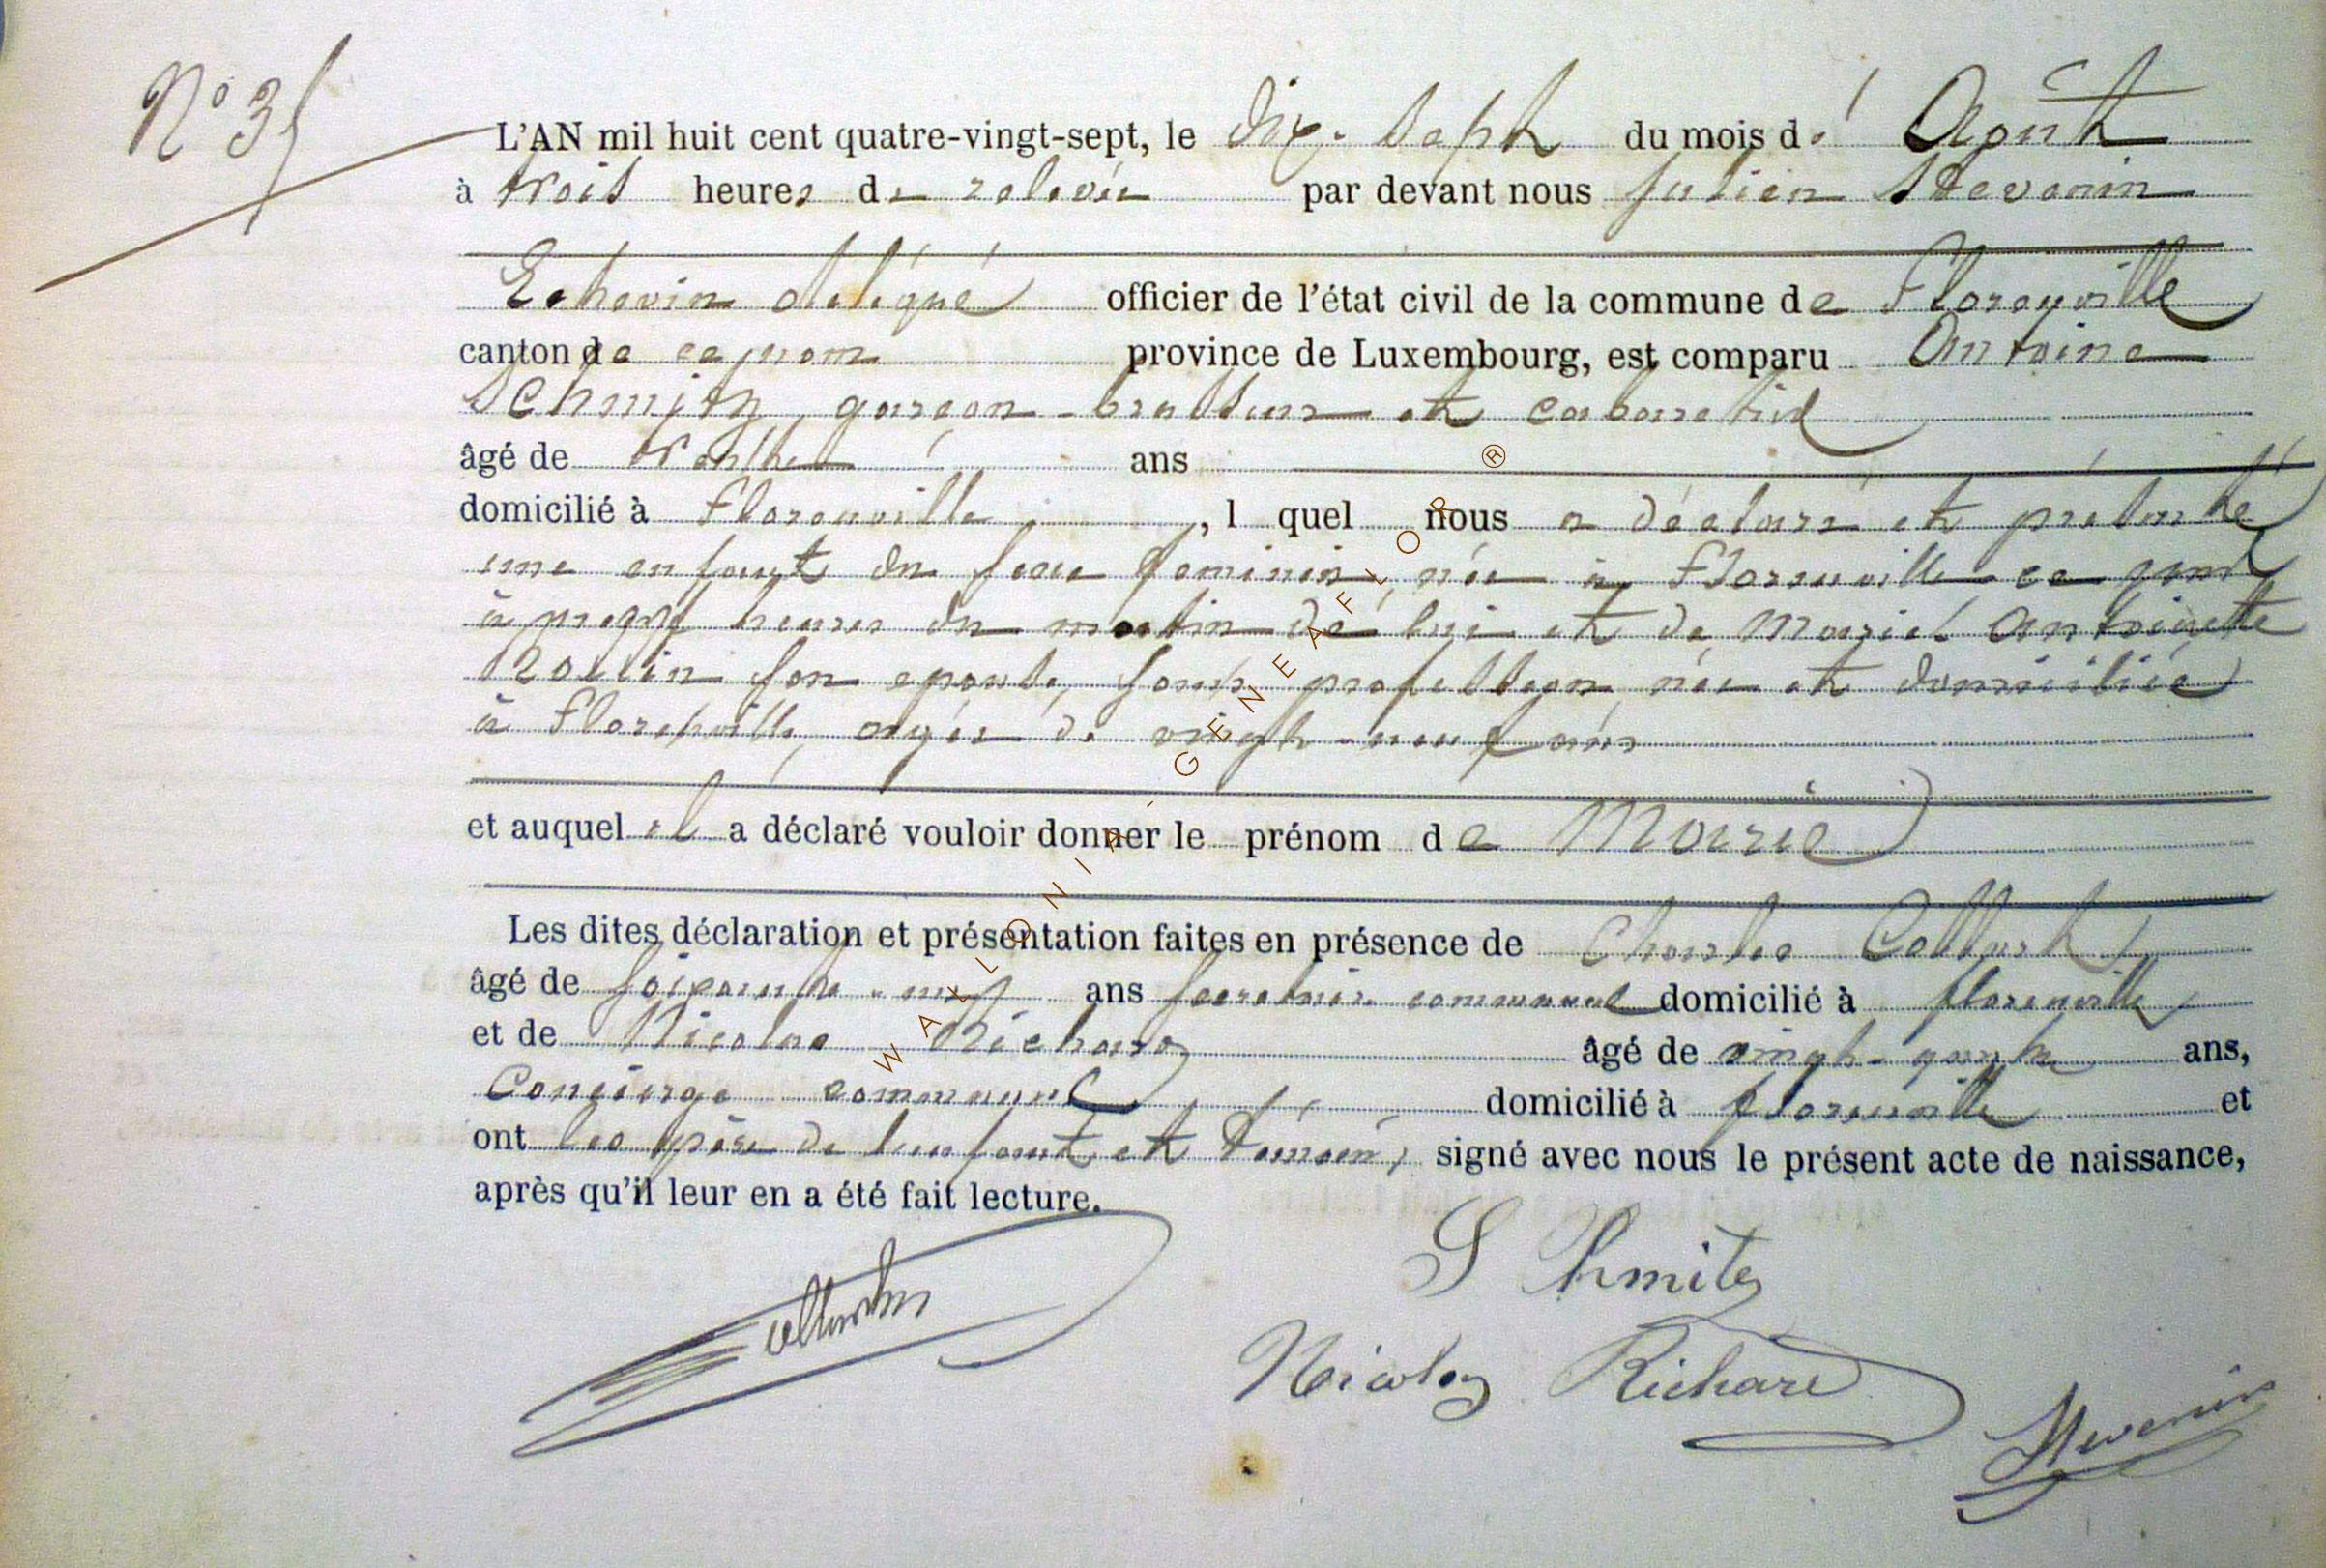 N° 35
L'AN mil huit cent quatre-vingt-sept, le dix-sept du mois d' Août
à trois heures de relevée par devant nous Julien Stevenin
Echevin délégué officier de l'état civil de la commune de Florenville
canton de ce nom province de Luxembourg, est comparu Antoine
Schmitz, garçon-brasseur et cabaretier
âgé de trente ans
domicilié à Florenville, l quel nous a déclaré et présenté
une enfant du sexe feminin, née à Florenville ce jour
à heures du matin de lui et de Marie Antoinette
son epouse, sans profession, née et domiciliée
à Florenville, agée de vingt-neuf ans
et auquel il a déclaré vouloir donner le prénom de Marie
Les dites déclaration et présentation faites en présence de Charles
âgé de soixante-neuf ans secretaire communal domicilié à florenville
et de Nicolas Richard âgé de vingt- ans,
Concierge communal domicilié à florenville et
ont les père de l'enfant et témoins, signé avec nous le présent acte de naissance,
après qu'il leur en a été fait lecture.
Schmitz
Nicolas Richard
Stevenin
WALLONIA-GENEAFLOR ®